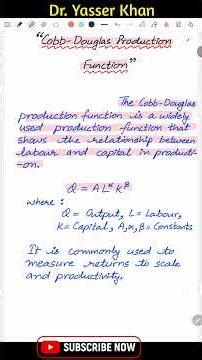 Dr. Yasser Khan
"Cobb-Douglas Production
Function"
The Cobb-Douglas
production function is a widely
used production function that
shows the relationship between
labour and capital in producti-
-on.
Q = A L^α K^β
where :
Q = Output, L = Labour,
K = Capital, A, α, β = Constants
It is commonly used to
measure returns to scale
and productivity.